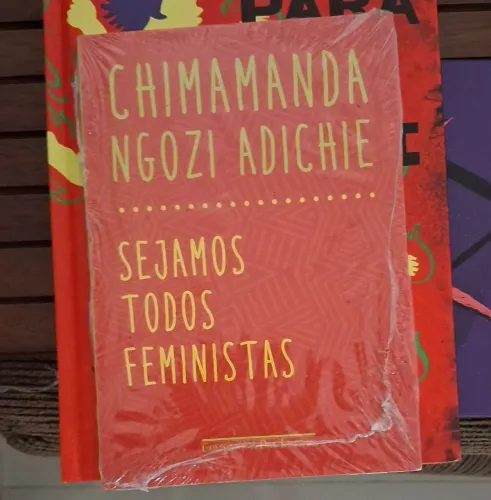 PARA
CHIMAMANDA
NGOZI ADICHIE
SEJAMOS
TODOS
FEMINISTAS